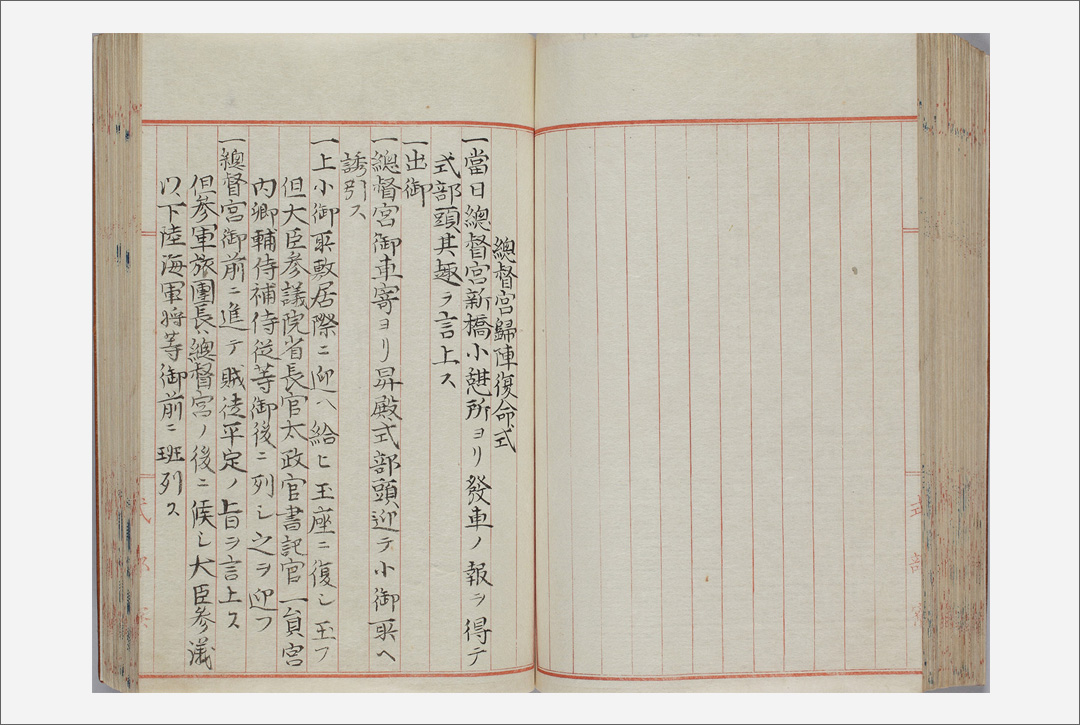 總督宮歸陣復命式
一當日總督宮新橋小憩所ヨリ發車ノ報ヲ得テ
式部頭其趣ヲ言上ス
一出御
一總督宮御車寄ヨリ昇殿式部頭迎テ小御所ヘ
誘引ス
一上小御所敷居際ニ迎ヘ給ヒ玉座ニ復シ玉フ
但大臣参議院省長官太政官書記官一員宮
内卿輔侍補侍従等御後ニ列シ之ヲ迎フ
一總督宮御前ニ進テ賊徒平定ノ旨ヲ言上ス
但参軍旅團長ハ總督宮ノ後ニ候シ大臣参議
以下陸海軍将等御前ニ班列ス
式部寮